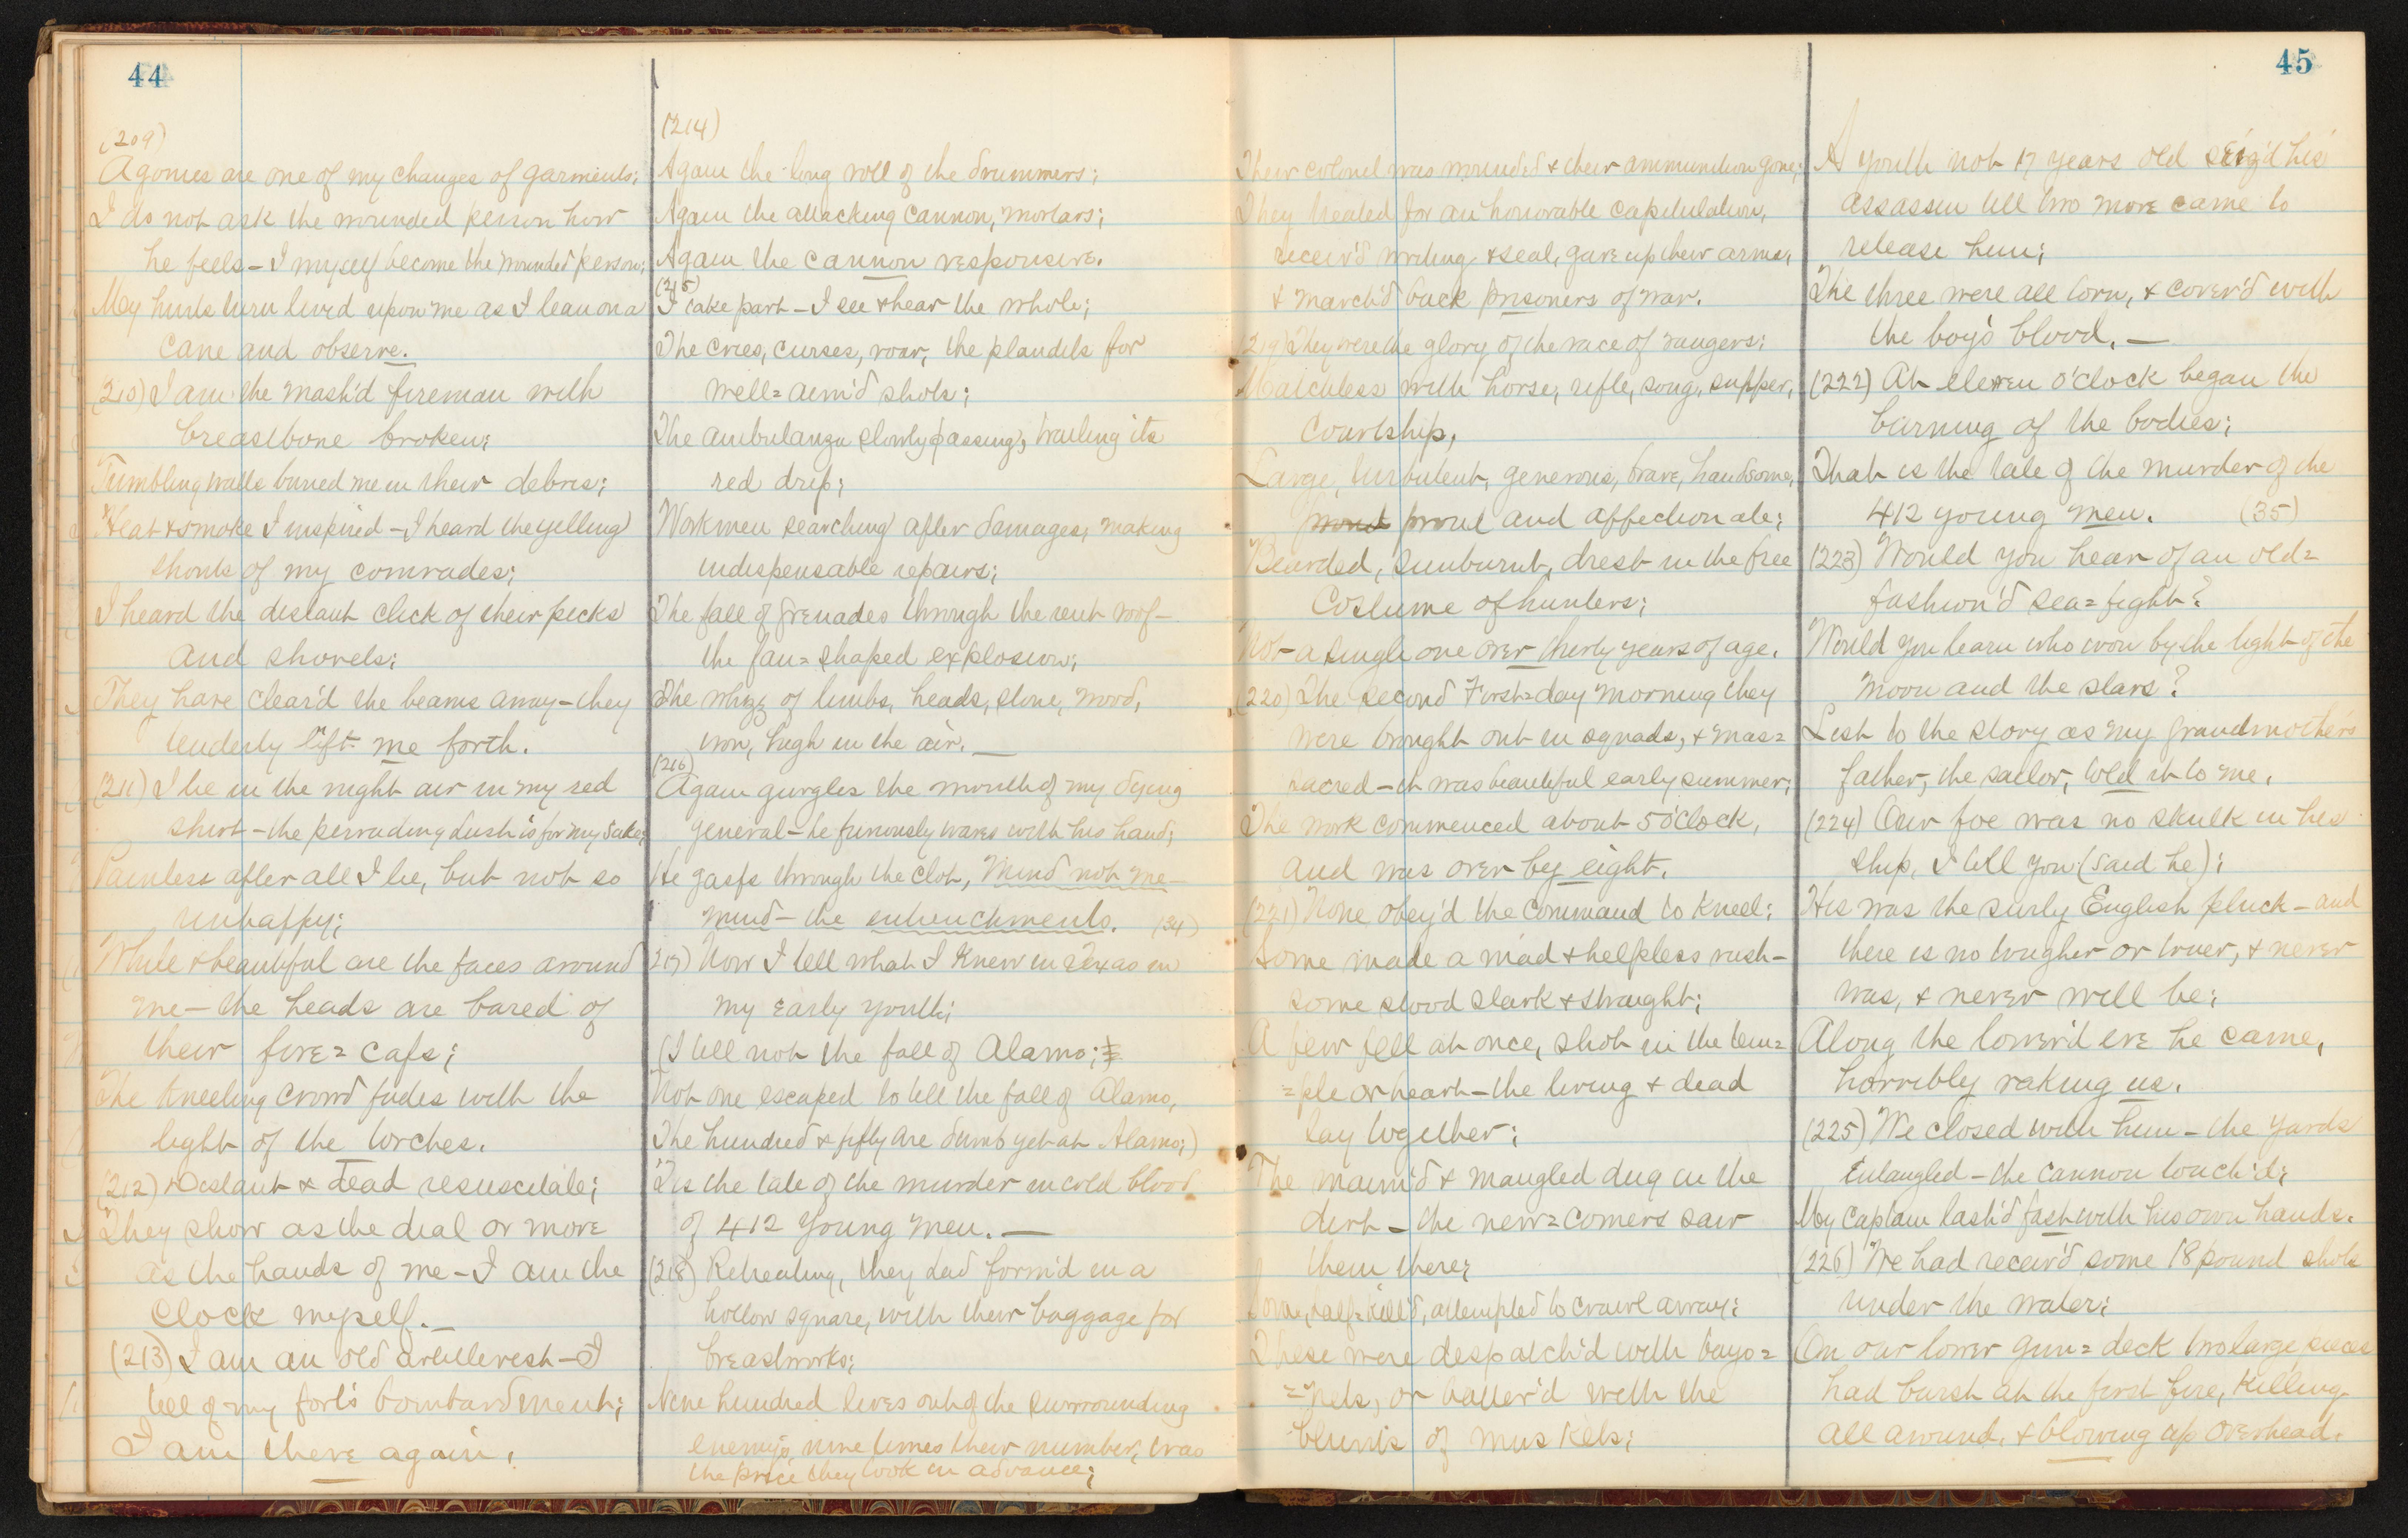 44
(209)
Agonies are one of my changes of garments;
I do not ask the wounded person how
he feels - I myself become the wounded person;
My hurts turn livid upon me as I lean on a
cane and observe.
(210) I am the mash'd fireman with
breastbone broken;
Tumbling walls buried me in their debris;
Heat & smoke I inspired - I heard the yelling
shouts of my comrades;
I heard the distant click of their picks
and shovels;
They have clear'd the beams away - they
tenderly lift me forth.
(211) I lie in the night air in my red
shirt - the pervading hush is for my sake;
Painless after all I lie, but not so
unhappy;
White & beautiful are the faces around
me - the heads are bared of
their fire=caps;
The kneeling crowd fades with the
light of the torches.
(212) Distant & dead resuscitate;
They show as the dial or move
as the hands of me - I am the
clock myself. _
(213) I am an old artillerist - I
tell of my fort's bombardment;
I am there again.
(214)
Again the long roll of the drummers;
Again the attacking cannon, mortars;
Again the cannon responsive.
(215)
I take part - I see & hear the whole;
The cries, curses, roar, the plaudits for
well=aim'd shots;
The ambulanza slowly passing, trailing its
red drip;
Workmen searching after damages, making
indispensable repairs;
The fall of grenades through the rent roof -
the fan=shaped explosion;
The whizz of limbs, heads, stone, wood,
iron, high in the air. _
(216)
Again gurgles the mouth of my dying
general - he furiously waves with his hand;
He gasps through the clot, Mind not me -
mind - the entrenchments. (34)
217) Now I tell what I knew in Texas in
my early youth;
(I tell not the fall of Alamo;
Not one escaped to tell the fall of Alamo,
The hundred & fifty are dumb yet at Alamo;)
'Tis the tale of the murder in cold blood
of 412 young men. —
(218) Retreating, they had form'd in a
hollow square, with their baggage for
breastworks;
Nine hundred lives out of the surrounding
enemy's, nine times their number, was
the price they took in advance;
45
Their colonel was wounded & their ammunition gone;
They treated for an honorable capitulation,
receiv'd writing & seal, gave up their arms,
& march'd back prisoners of war.
219) They were the glory of the race of rangers;
Matchless with horse, rifle, song, supper,
courtship,
Large, turbulent, generous, brave, handsome,
proud and affectionate;
Bearded, sunburnt, drest in the free
costume of hunters;
Not a single one over thirty years of age.
(220) The second First=day morning they
were brought out in squads, & mas=
sacred - it was beautiful early summer;
The work commenced about 5 o'clock,
and was over by eight.
(221) None obey'd the command to kneel;
Some made a mad & helpless rush -
some stood stark & straight;
A few fell at once, shot in the tem=
=ple or heart - the living & dead
lay together;
The maim'd & mangled dug in the
dirt - the new=comers saw
them there;
Some, half=kill'd, attempted to crawl away;
These were despatch'd with bayo=
=nets, or batter'd with the
blunts of muskets;
A youth not 17 years old seiz'd his
assassin till two more came to
release him;
The three were all torn, & cover'd with
the boy's blood. —
(222) At eleven o'clock began the
burning of the bodies;
That is the tale of the murder of the
412 young men. (35)
(223) Would you hear of an old=
fashion'd sea=fight?
Would you learn who won by the light of the
moon and the stars?
List to the story as my grandmother's
father, the sailor, told it to me.
(224) Our foe was no skulk in his
ship, I tell you (said he);
His was the surly English pluck - and
there is no tougher or truer, & never
was, & never will be;
Along the lower'd eve he came,
horribly raking us.
(225) We closed with him - the yards
entangled - the cannon touch'd;
My captain lash'd fast with his own hands.
(226) We had receiv'd some 18 pound shots
under the water;
On our lower gun=deck two large pieces
had burst at the first fire, killing
all around, & blowing up overhead.